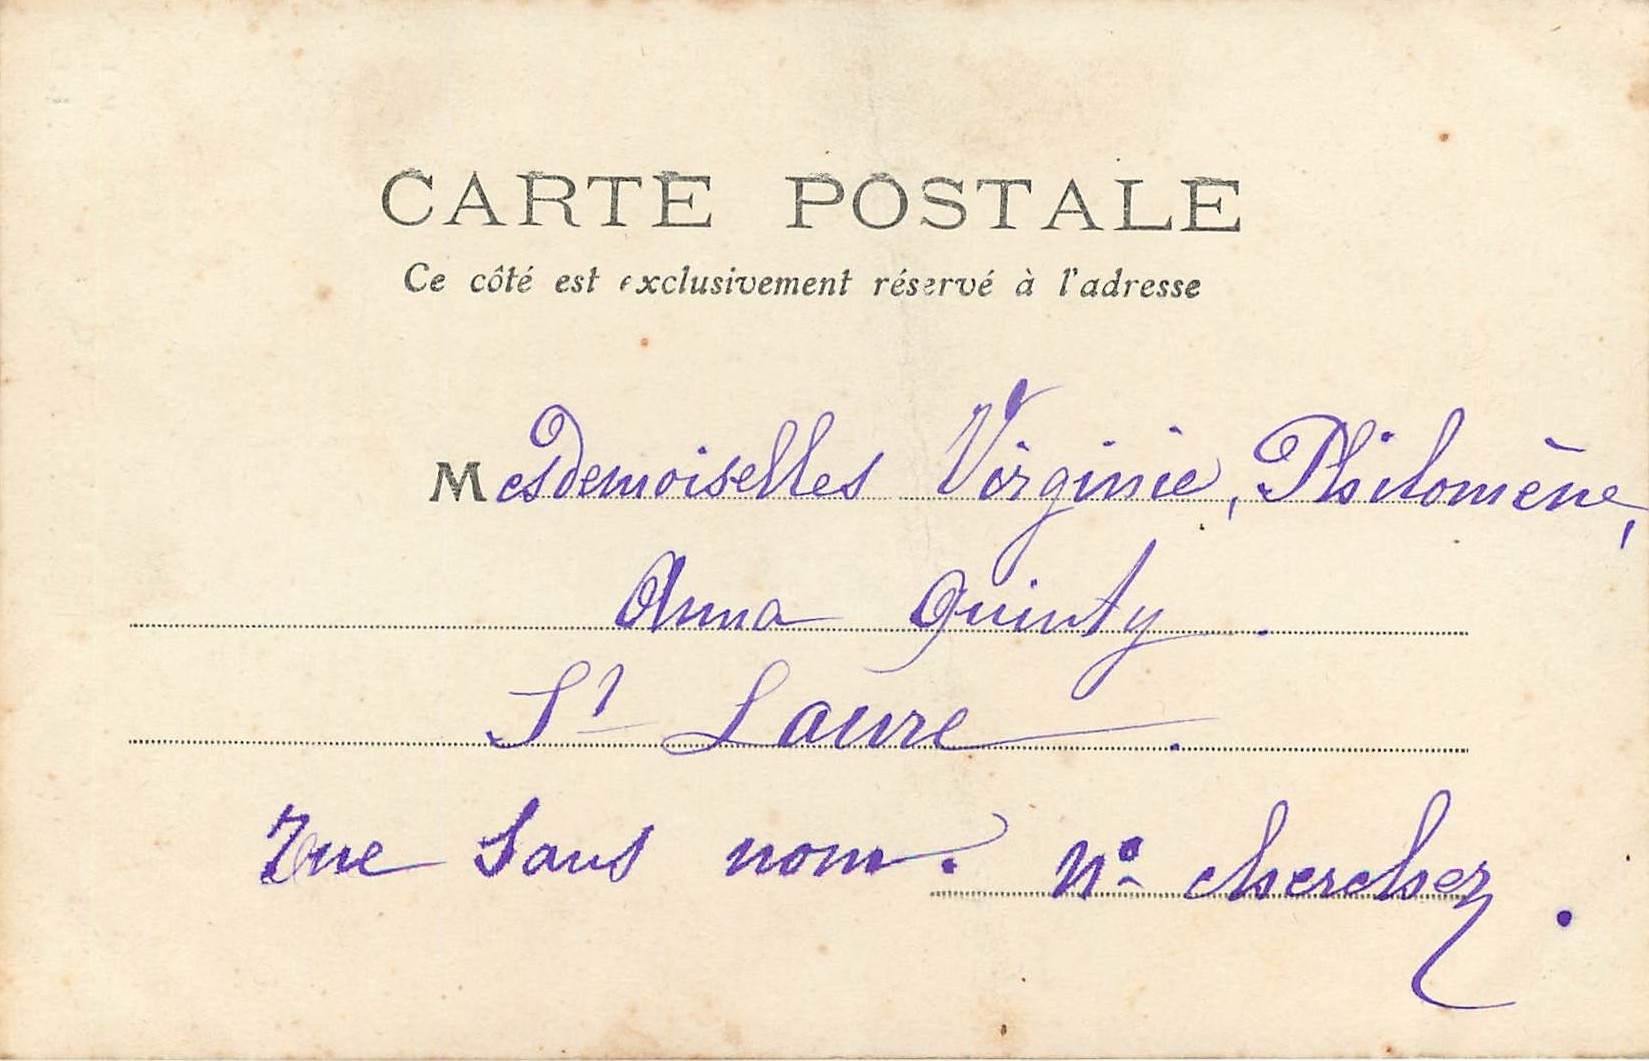 CARTE POSTALE
Ce côté est exclusivement réservé à l'adresse
Mesdemoiselles Virginie, Philomène,
Anna Quinty.
St Laure.
rue Sans nom. N° cherchez.